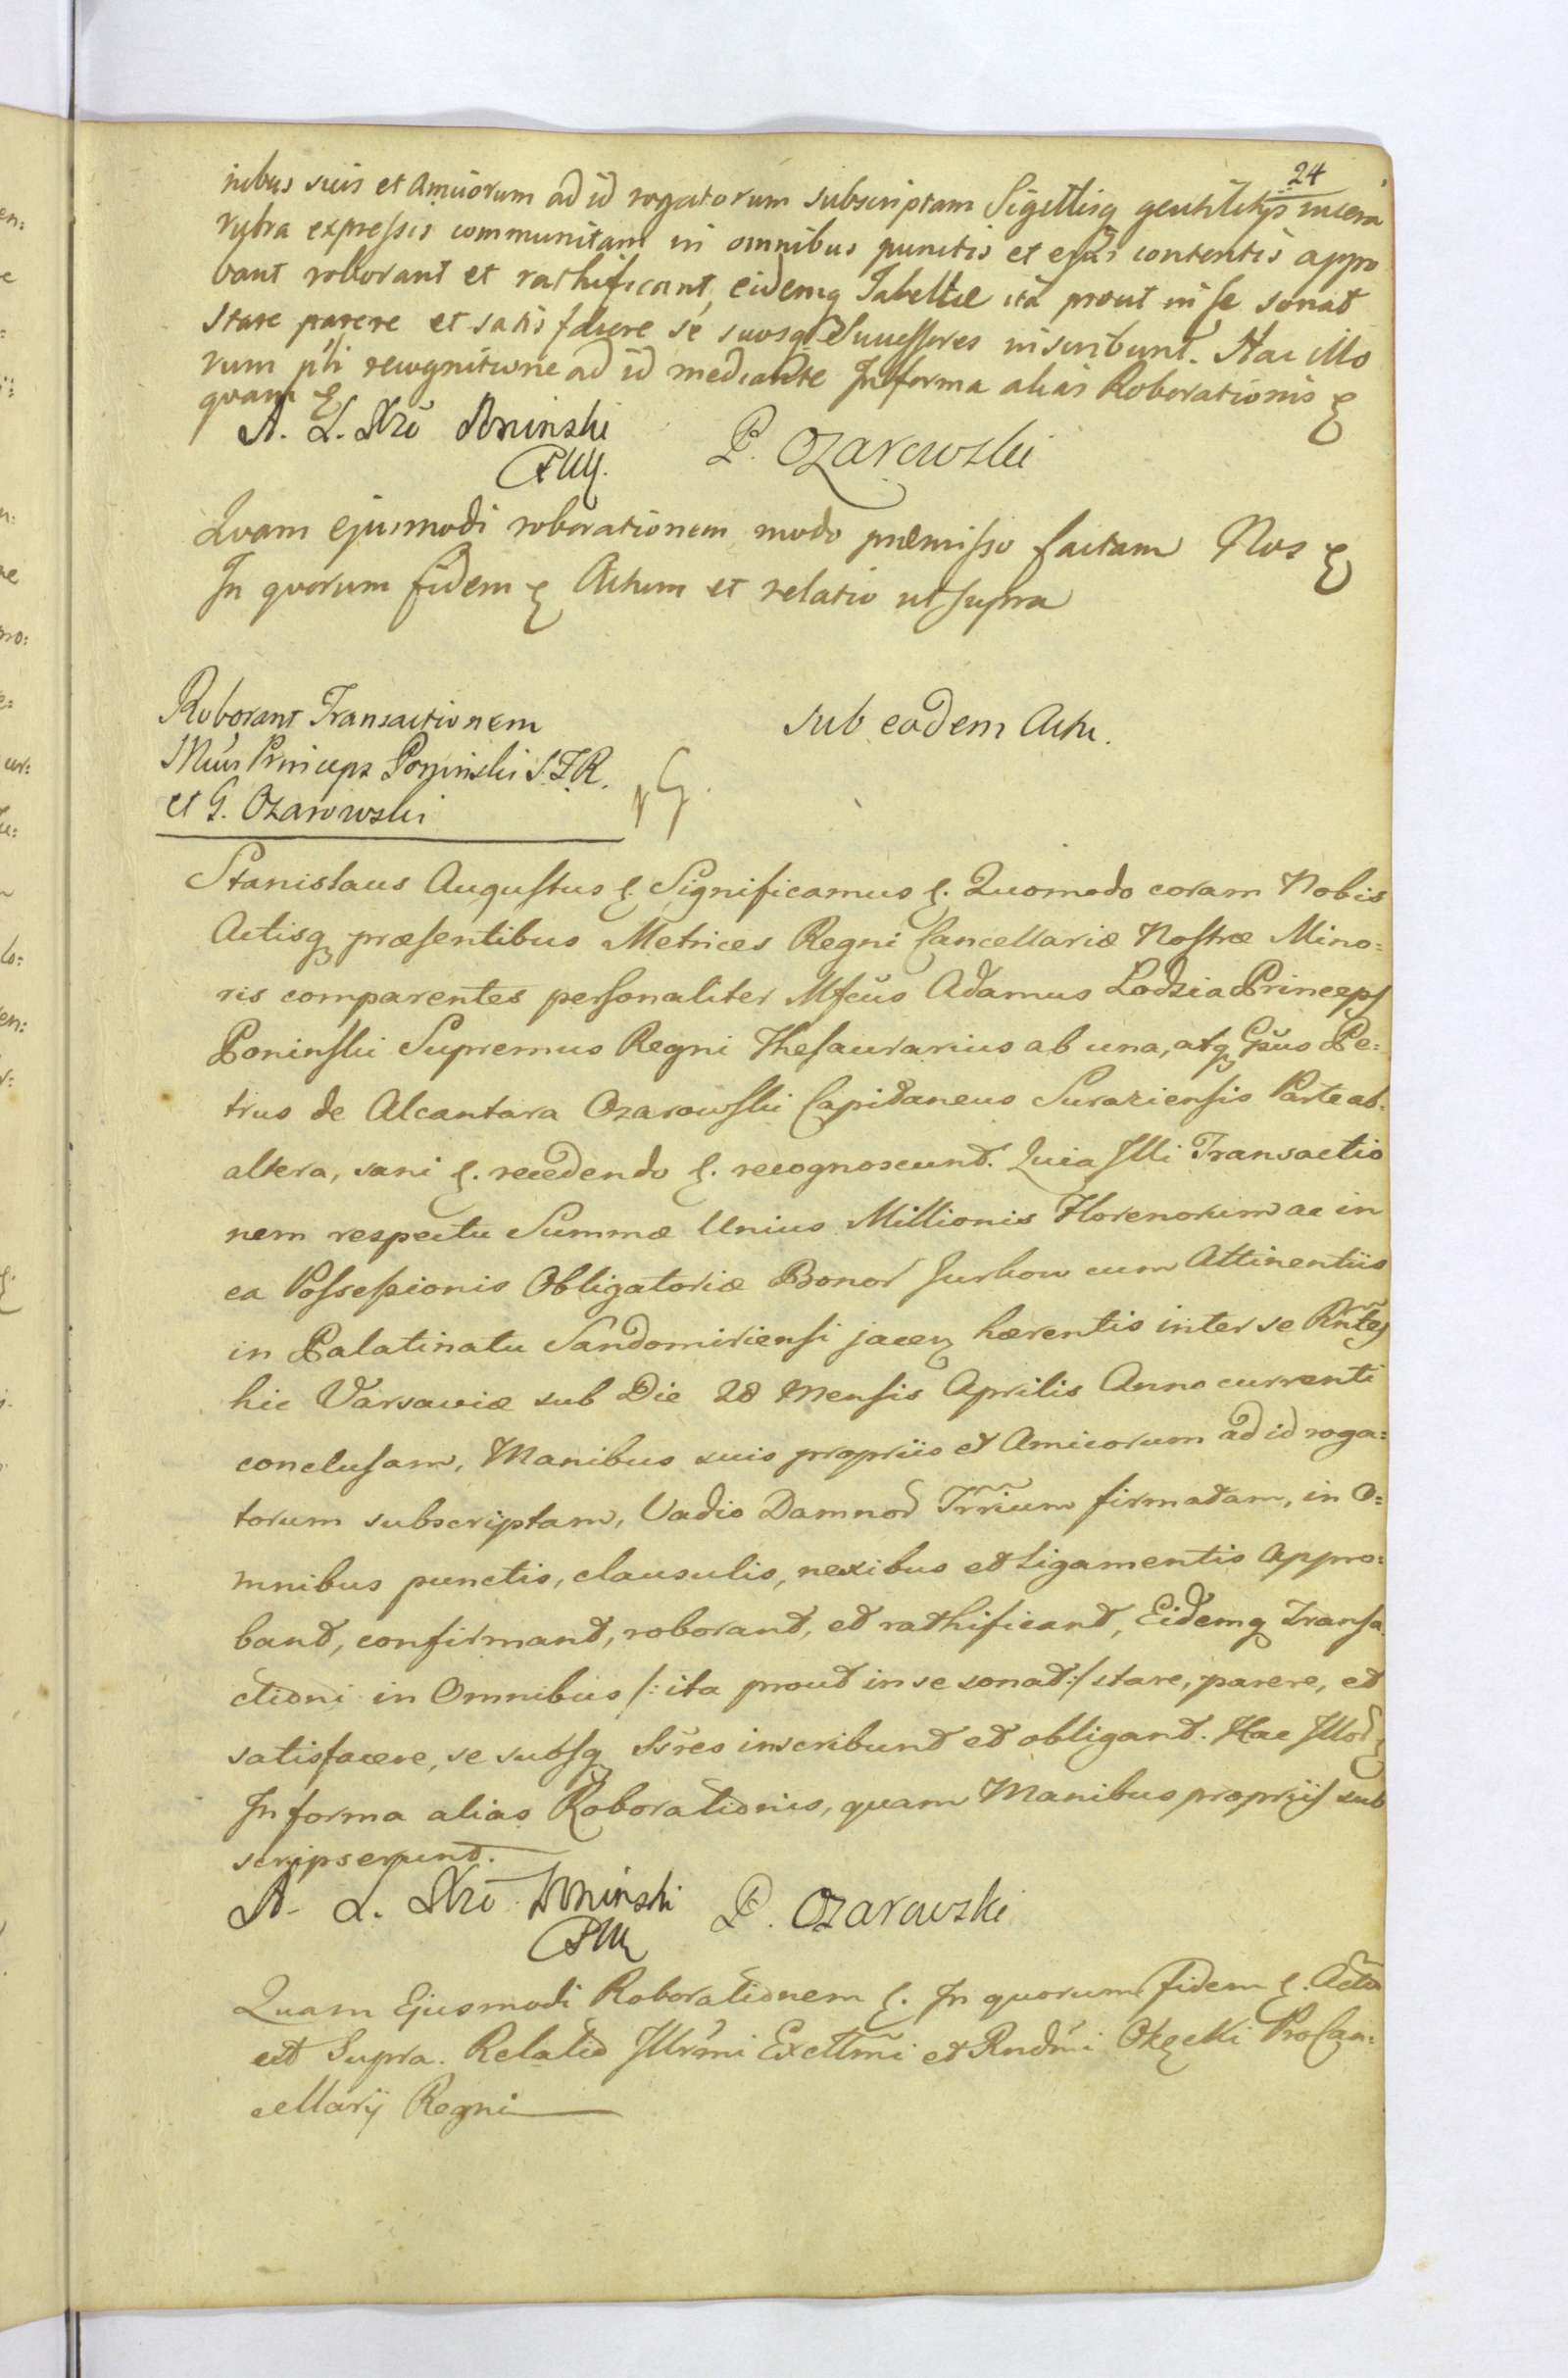 24
nibus suis et Amicorum ad id rogatorum subscriptam Sigillisq gentilitijs in cera
rubra expressis communitam in omnibus punctis et ejus contentis appro
bant roborant et rathificant, eidemq Tabellæ ita prout in se sonat
stare parere et satisfacere se suosq Successores inscribunt. Hac illo
rum pñti recognitione ad id mediante In forma alias Roborationis
quam
A. L. Xże Poninski
P. Ozarowski
PWK.
Quam ejusmodi roborationem modo præmisso factam Nos
In quorum fidem Actum et relatio ut supra
Roborant Transactionem
Mcus Princeps Poninski S.T.R.
et G. Ozarowski
sub eodem Actu.
Stanislaus Augustus Significamus Quomodo coram Nobis
Actisq præsentibus Metrices Regni Cancellariæ Nostræ Mino=
ris comparentes personaliter Mfcus Adamus Lodzia Princeps
Poninski Supremus Regni Thesaurarius ab una, atq Gsus Pe=
trus de Alcantara Ozarowski Capitaneus Suraziensis Parte ab
altera, sani recedendo recognoscunt. Quia Illi Transactio
nem respectu Summæ Unius Millionis Florenorum ac in
ea Possessionis Obligatoriæ Bonor cum Attinentiis
in Palatinatu Sandomiriensi jacen hærentis inter se Rntes
hic Varsaviæ sub Die 28 Mensis Aprilis Anno currenti
conclusam, Manibus suis propriis et Amicorum ad id roga=
torum subscriptam, Vadio Damnor Trrium firmatam, in O=
mnibus punctis, clausulis, nexibus et Ligamentis Appro=
bant, confirmant, roborant, et rathificant, Eidemq Transa
ctioni in Omnibus /: ita prout in se sonat :/ stare, parere, et
satisfacere, se subsq Ssres inscribunt et obligant. Hac Illor
In forma alias Roborationis, quam Manibus propriis sub
scripserunt.
A. L. Xże Poninski P. Ozarowski
PWK
Quam Ejusmodi Roborationem In quorum fidem Acta
ut Supra. Relatio Illrmi Excllmi et Rndmi Okęcki ProCan=
cellarij Regni